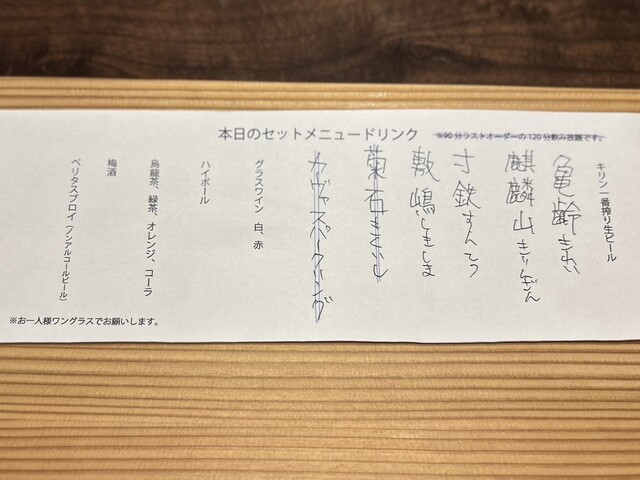 本日のセットメニュードリンク
※90分ラストオーダーの120分飲み放題です。
キリン一番搾り生ビール
亀齢きれい
麒麟山きりんざん
寸鉄すんてつ
敷嶋しきしま
菊石きくいし
カヴァスパークリング
グラスワイン 白、赤
ハイボール
烏龍茶、緑茶、オレンジ、コーラ
梅酒
ベリタスブロイ（ノンアルコールビール）
※お一人様ワングラスでお願いします。